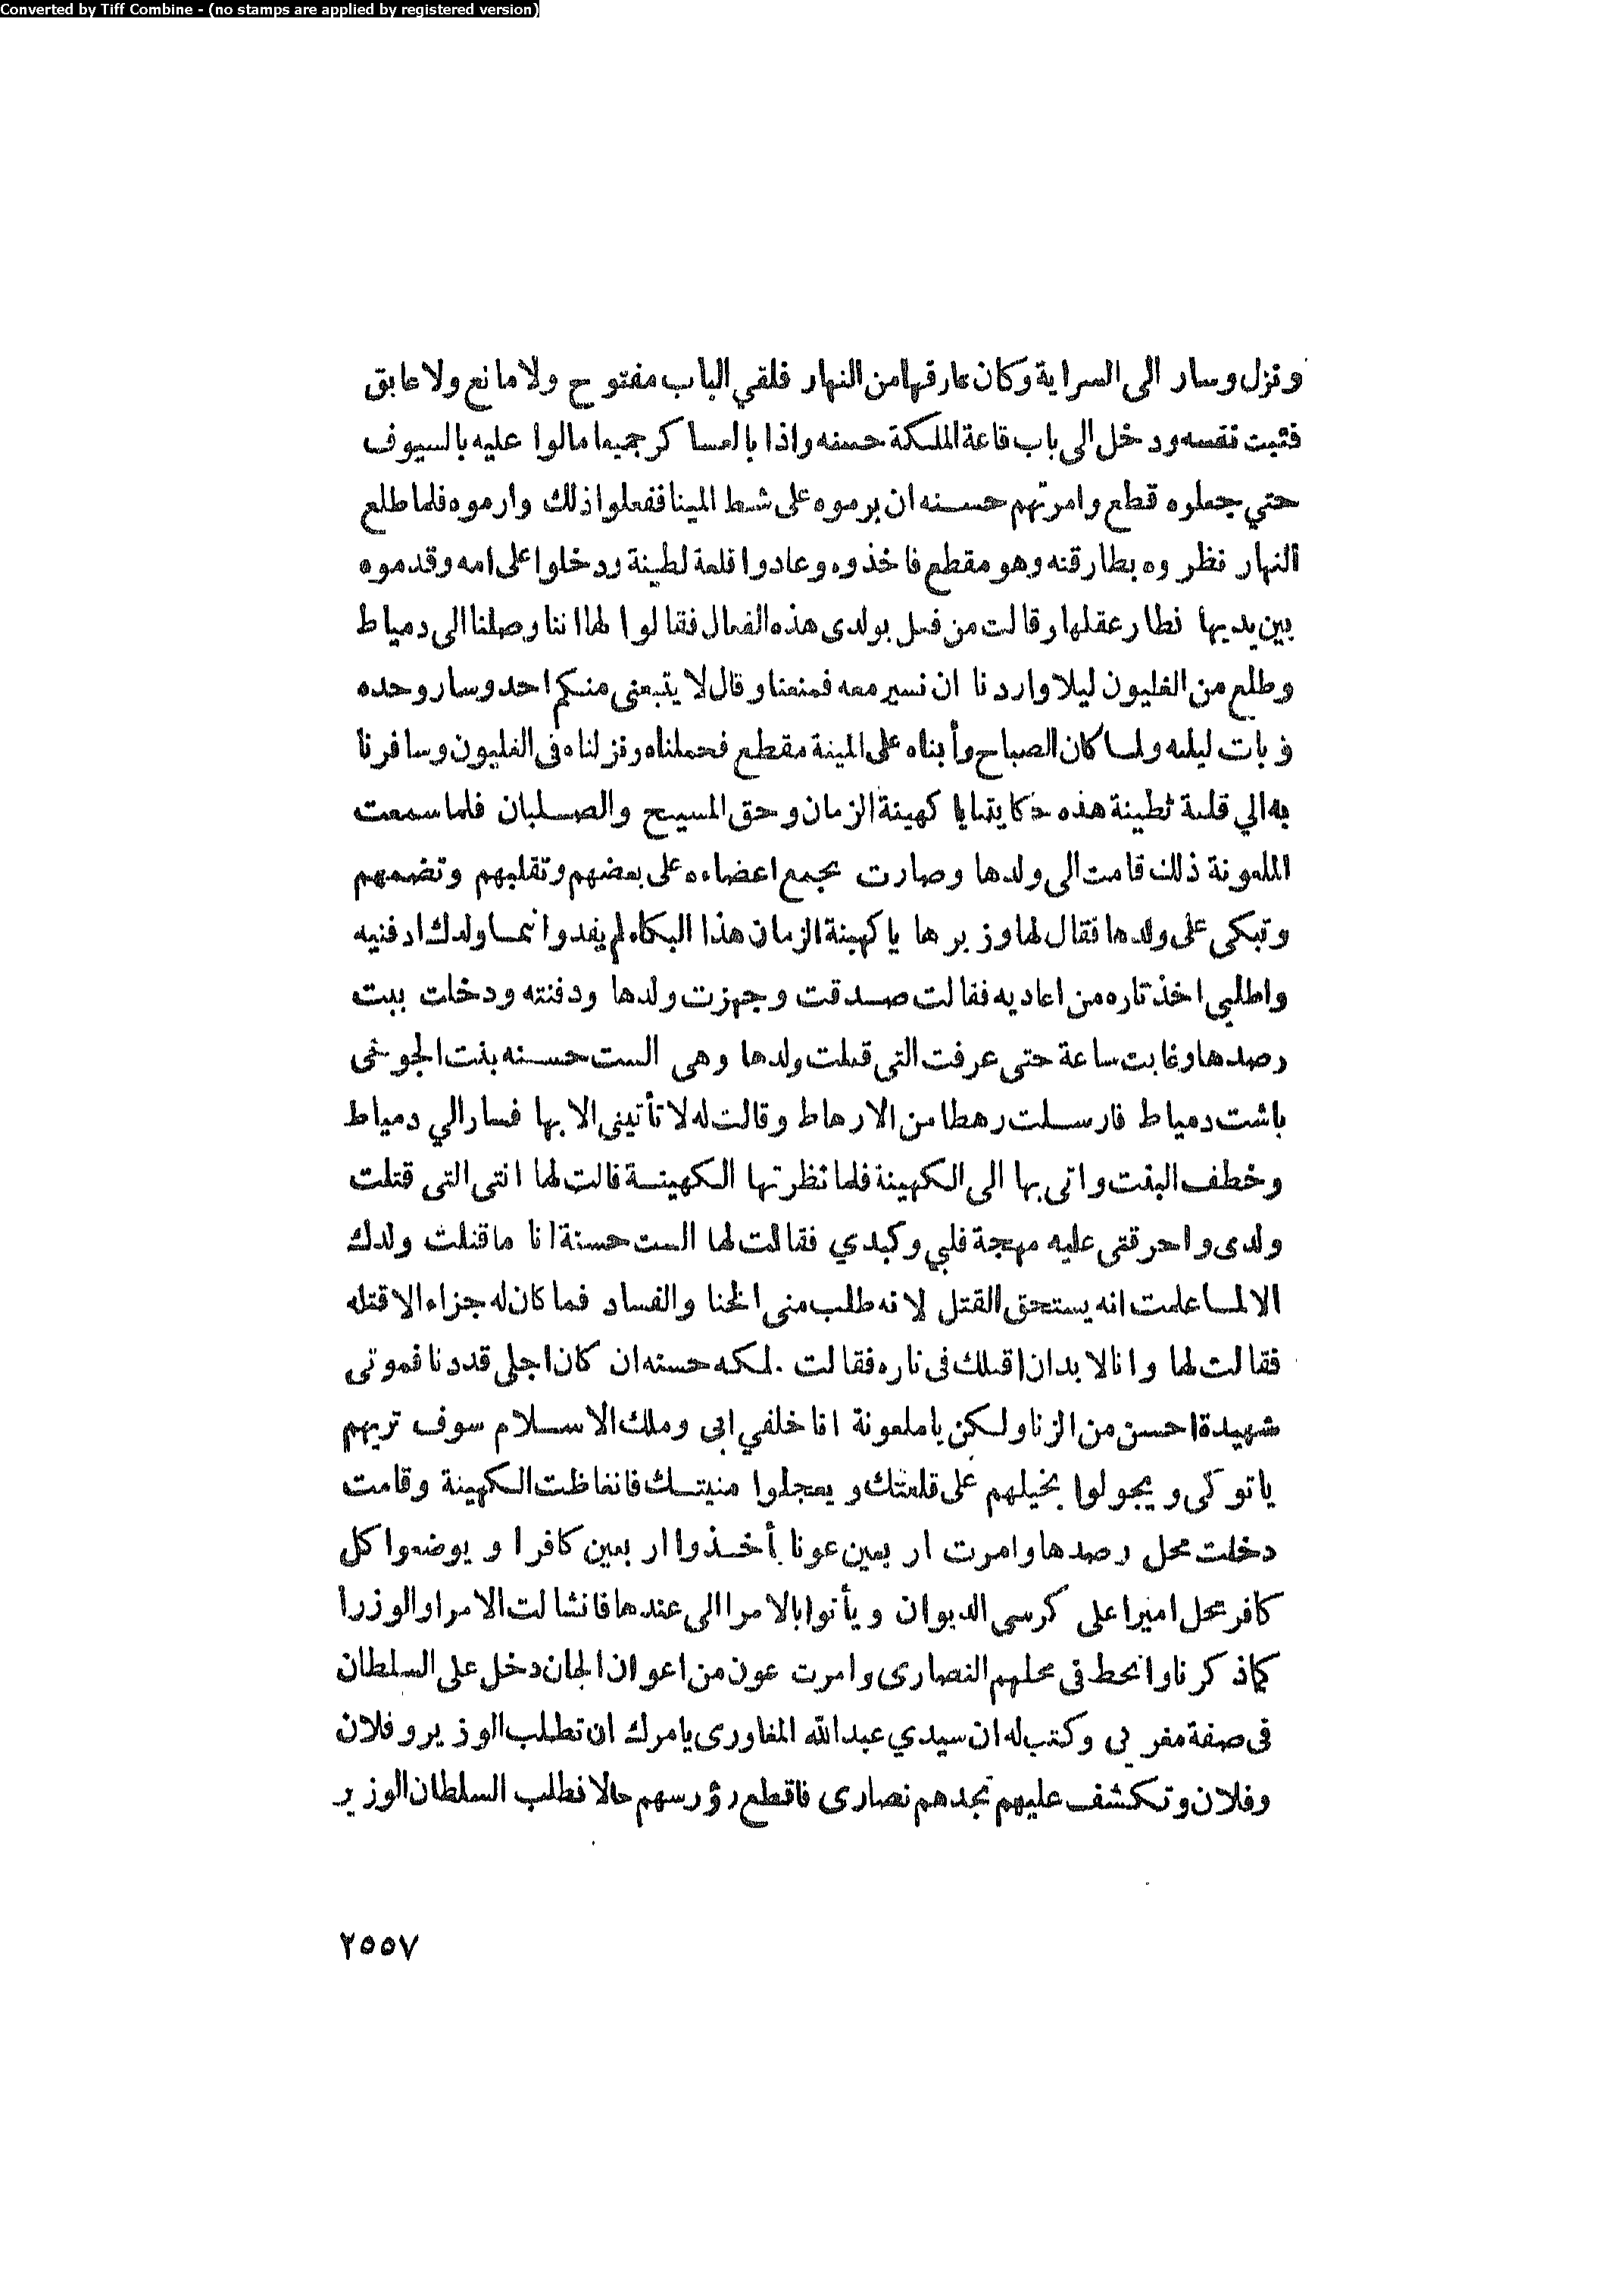 Converted by Tiff Combine - (no stamps are applied by registered version)
ونزل وسار الى السراية وكان عارفها من النهار فلقي الباب مفتوح ولا مانع ولا عايق
فثبت نفسه ودخل الى باب قاعة الملكة حسنه واذا بالعساكر جميعا مالوا عليه بالسيوف
حتي جعلوه قطع وامرتهم حسنه ان يرموه على شط المينا ففعلوا ذلك وارموه فلما طلع
النهار نظروه بطارقنه وهو مقطع فاخذوه وعادوا قلعة لطينة ودخلوا على امه وقدموه
بين يديها فطار عقلها وقالت من فعل بولدى هذه الفعال فقالوا لها اننا وصلنا الى دمياط
وطلع من الغليون ليلا واردنا ان نسير معه فمنعنا وقال لا يتبعنى منكم احد وسار وحده
وبات ليلته ولما كان الصباح رأيناه على المينة مقطع فحملناه ونزلناه فى الغليون وسافرنا
به الي قلعة لطينة هذه حكايتنا يا كهينة الزمان وحق المسيح والصلبان فلما سمعت
الملعونة ذلك قامت الى ولدها وصارت تجمع اعضاءه على بعضهم وتقلبهم وتضمهم
وتبكى على ولدها فقال لها وزيرها يا كهينة الزمان هذا البكاء لم يفد وانما ولدك ادفنيه
واطلبي اخذ تاره من اعاديه فقالت صدقت وجهزت ولدها ودفنته ودخلت بيت
رصدها وغابت ساعة حتى عرفت التى قتلت ولدها وهى الست حسنه بنت الجوغمى
باشت دمياط فارسلت رهطا من الارهاط وقالت له لا تأتينى الا بها فسار الي دمياط
وخطف البنت واتى بها الى الكهينة فلما نظرتها الكهينة قالت لها انتى التى قتلت
ولدى واحرقتى عليه مهجة قلبي وكبدي فقالت لها الست حسنة انا ما قتلت ولدك
الا لما علمت انه يستحق القتل لانه طلب منى الخنا والفساد فما كان له جزاء الا قتله
فقالت لها وانا لا بد ان اقتلك فى تاره فقالت الملكه حسنه ان كان اجلى قد دنا فموتى
شهيدة احسن من الزنا ولكن يا ملعونة انا خلفي ابى وملك الاسلام سوف تريهم
ياتوكى ويجولوا بخيلهم على قلعتك ويعجلوا منيتك فانغاظت الكهينة وقامت
دخلت محل رصدها وامرت اربعين عونا يأخذوا اربعين كافرا ويوضعوا كل
كافر محل اميرا على كرسى الديوان ويأتوا بالامرا الى عندها فانشالت الامرا والوزرا
كما ذكرنا وانحط فى محلهم النصارى وامرت عون من اعوان الجان دخل على السلطان
فى صفة مغربى وكتب له ان سيدي عبد الله المغاورى يامرك ان تطلب الوزير وفلان
وفلان وتكشف عليهم تجدهم نصارى فاقطع رؤوسهم حالا فطلب السلطان الوزير
٢٥٥٧